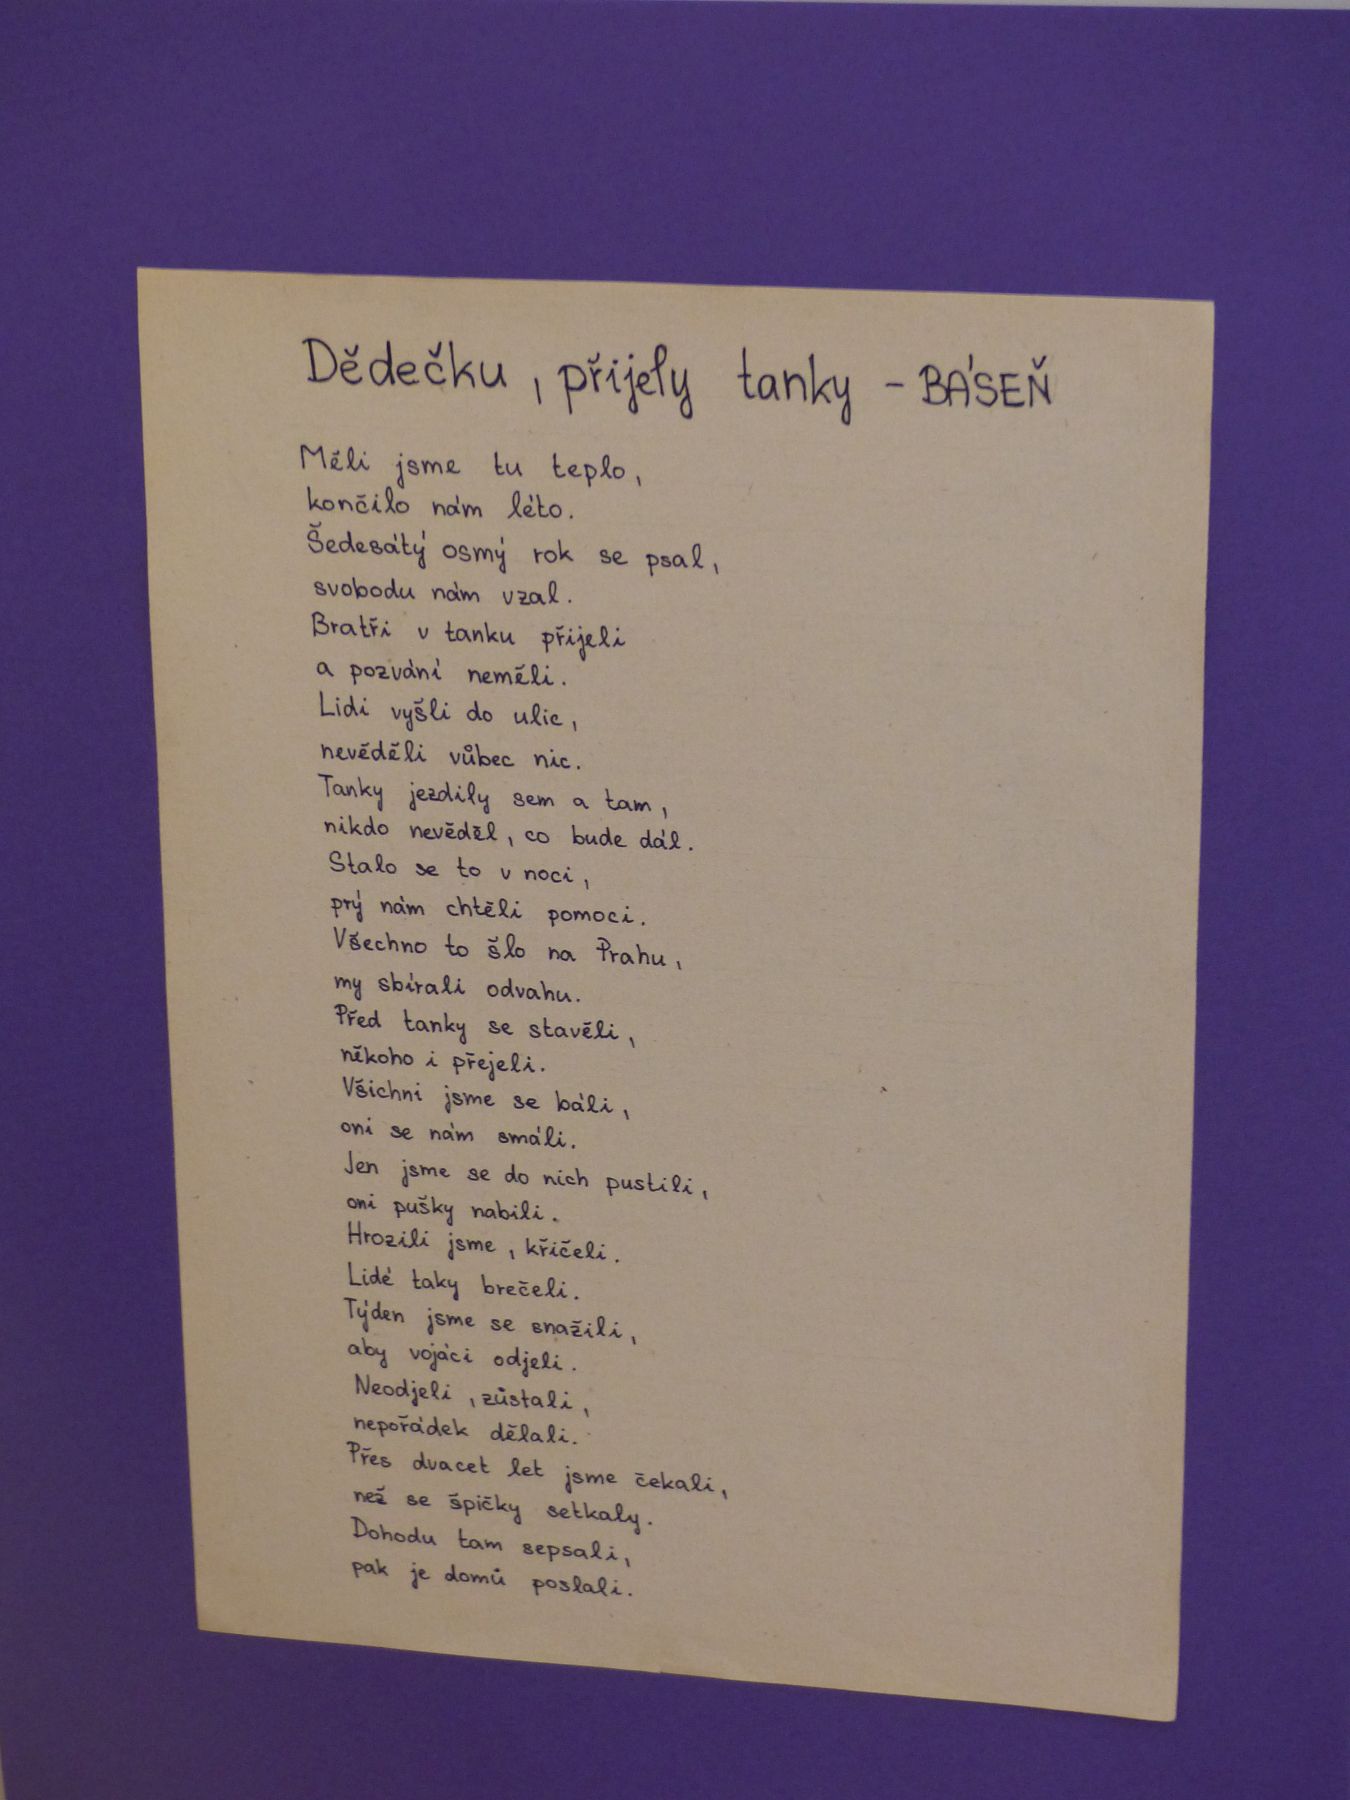 Dědečku, přijely tanky - BÁSEŇ
Měli jsme tu teplo,
končilo nám léto.
Šedesátý osmý rok se psal,
svobodu nám vzal.
Bratři v tanku přijeli
a pozvání neměli.
Lidi vyšli do ulic,
nevěděli vůbec nic.
Tanky jezdily sem a tam,
nikdo nevěděl, co bude dál.
Stalo se to v noci,
prý nám chtěli pomoci.
Všechno to šlo na Prahu,
my sbírali odvahu.
Před tanky se stavěli,
někoho i přejeli.
Všichni jsme se báli,
oni se nám smáli.
Jen jsme se do nich pustili,
oni pušky nabili.
Hrozili jsme, křičeli.
Lidé taky brečeli.
Týden jsme se snažili,
aby vojáci odjeli.
Neodjeli, zůstali,
nepořádek dělali.
Přes dvacet let jsme čekali,
než se špičky setkaly.
Dohodu tam sepsali,
pak je domů poslali.